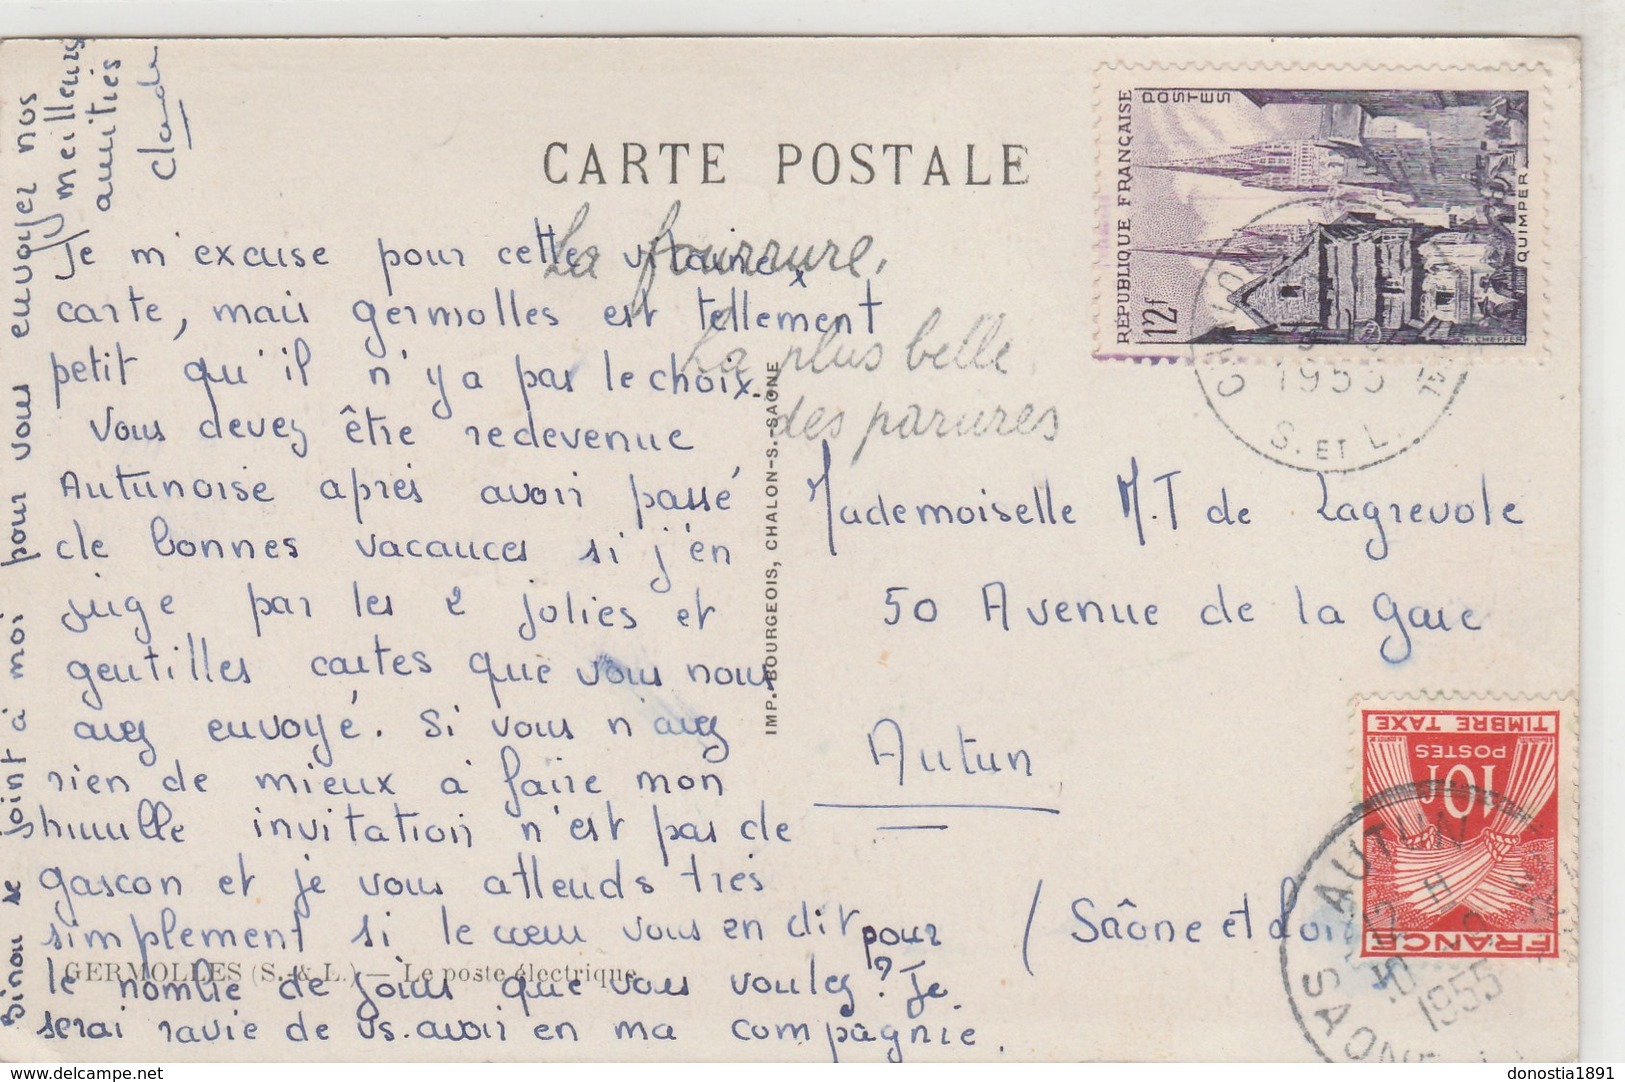 CARTE POSTALE
Je m'excuse pour cette vilaine
carte, mais Germolles est tellement
petit qu'il n'y a pas le choix.
Vous devez être redevenue
Autunoise après avoir passé
de bonnes vacances si j'en
juge par les 2 jolies et
gentilles cartes que vous nous
avez envoyé. Si vous n'avez
rien de mieux à faire mon
humble invitation n'est pas de
gascon et je vous attends très
simplement si le cœur vous en dit pour
le nombre de jours que vous voulez? Je
serai ravie de vs. avoir en ma compagnie.
Binou se joint à moi pour vous envoyer nos
meilleures
amitiés
Claude
La fourrure,
La plus belle
des parures
Mademoiselle M.T de Lagrevole
50 Avenue de la Gare
Autun
(Saône et Loire
GERMOLLES (S.-& L.) — Le poste électrique
IMP. BOURGEOIS, CHALON-S.-SAÔNE
RÉPUBLIQUE FRANÇAISE
POSTES
12F
QUIMPER
H. CHEFFER
1955
S. ET L.
TIMBRE TAXE
POSTES
10F
FRANCE
AUTUN
1955